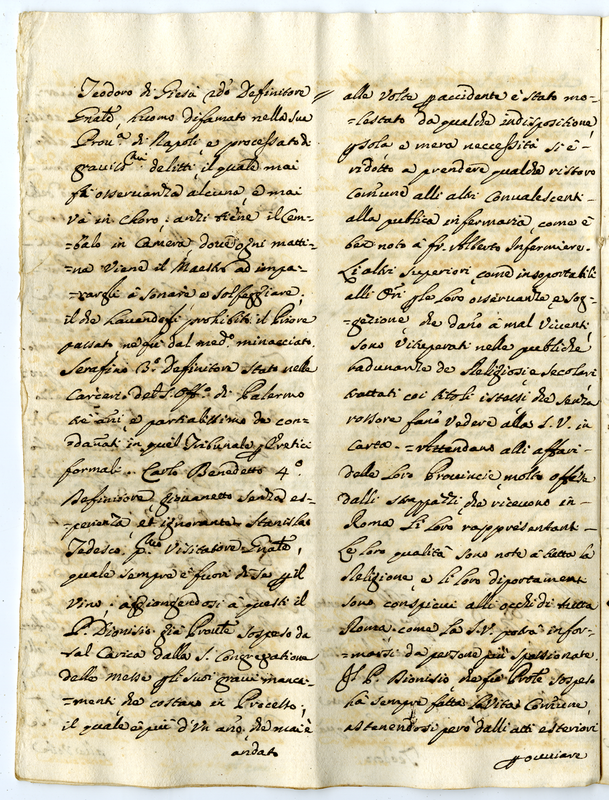 Teodoro di Giesù 2do Definitore
Gnãle, huomo difamato nella sua
Prou.a di Napoli, e processato di
grauiss.mi delitti il quale mai
fà osseruanza alcuna, e mai
và in choro; anzi tiene il Cem=
=balo in Camera doue ogni matti=
=na viene il Maestro ad impa=
=rargli à sonare e solfeggiare;
il che hauendogli prohibito il Priore
passato ne fù dal med.o minacciato.
Serafino 3.o Definitore stato nelle
Carceri del S. Off.o di Palermo
trè añi e partialissimo de con=
=dañati in quel Tribunale p Eretici
formali. Carlo Benedetto 4.o
Definitore giouanetto senza es=
=perienza, et ignorante. Stanislao
Tedesco, Visitatore Gnãle,
quale sempre è fuori di se p il
vino: aggiongendosi à questi il
P. Dionisio già Proũle sospeso da
tal Carica dalla S. Congregatione
delle Messe p gli suoi graui manca=
=menti che costano in Processo;
il quale è più d'un año, che mai è
andato
alle volte p accidente è stato mo=
=lestato da qualche indispositione,
p sola e mera neccessità si è
ridotto a prendere qualche ristoro
comune alli altri conualescenti
alla publica infermaria, come è
ben noto à fr. Alberto Infermiere.
Li altri superiori come insoportabili
alli p le loro osseruanze e sog=
=gezione, che dano à mal viuenti
sono vituperati nelle publiche
radunanze de Religiosi e secolari
trattati coi titoli istessi che senza
rossore fanò vedere alla S. V. in
carta. Attendano alli affari
delle loro Prouincie molto offese
dalli strappazzi che riceuono in
Roma li loro rappresentanti.
Le loro qualità sono note à tutta la
Religione, e li loro diportamenti
sono conspicui alli occhi di tutta
Roma, come la S. V. potrà infor=
=marsi da persone più spassionate.
Il P. Dionisio, che fù Proũle sospeso
hà sempre fatta la vita comune,
astenendosi però dalli atti esteriori
p ouuiare